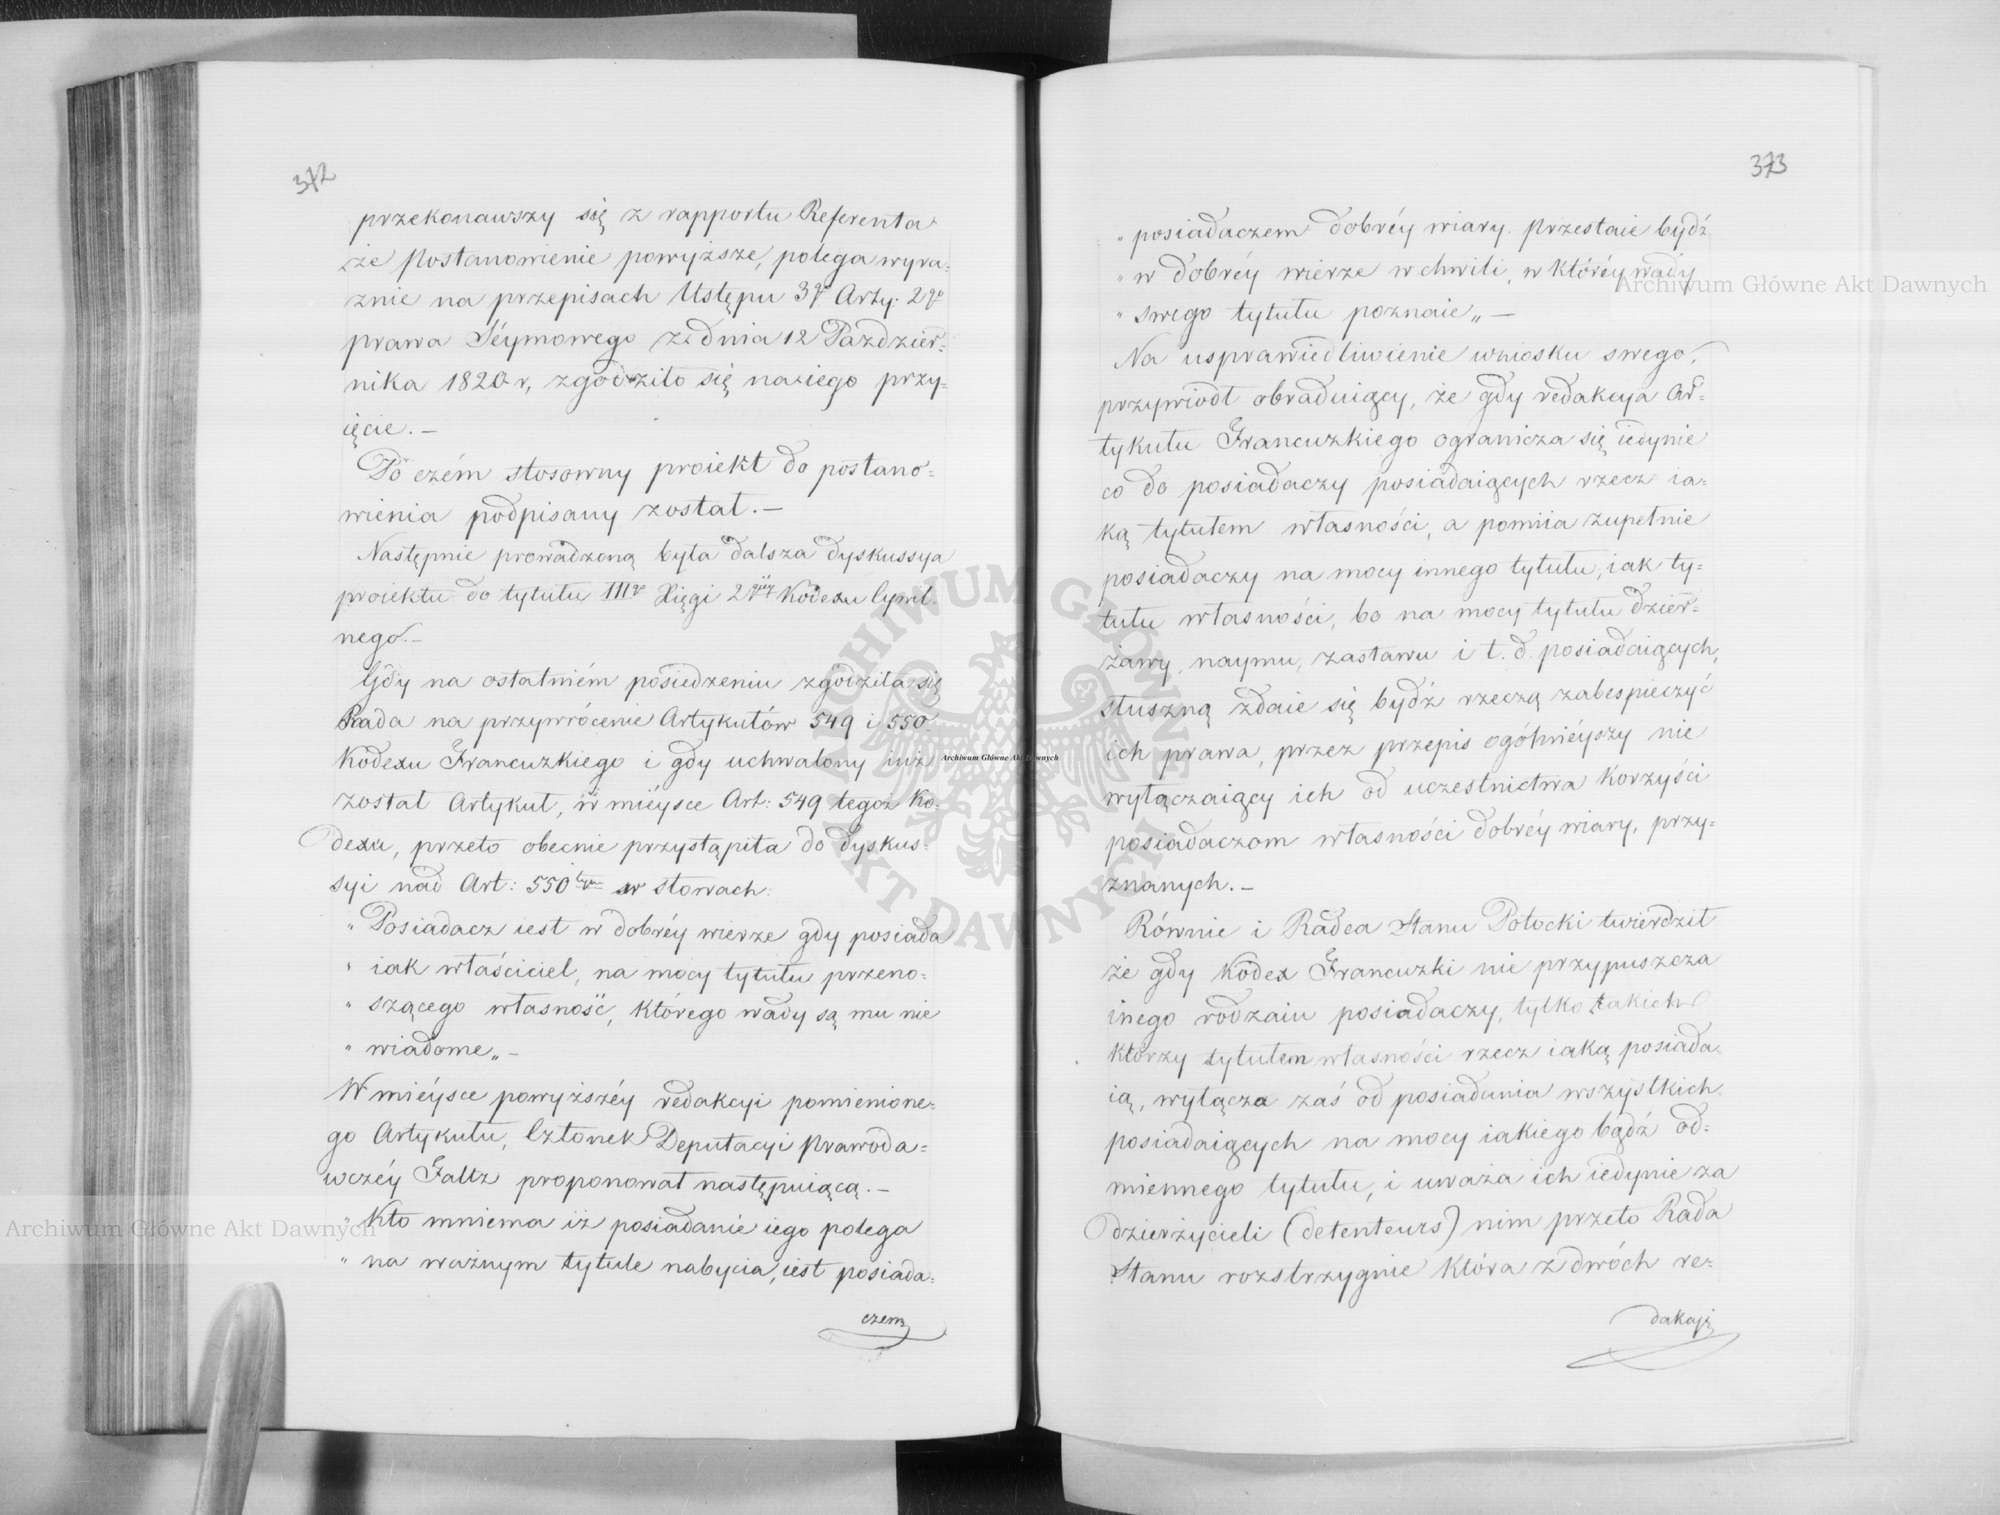 372
przekonawszy się z rapportu Referenta
że Postanowienie powyższe, polega wyra=
znie na przepisach Ustępu 3go Arty: 2go
prawa Séymowego z dnia 12 Pazdzier=
nika 1820 r, zgodziło się na iego przy=
ięcie.—
Po czém stosowny proiekt do postano=
wienia podpisany został.—
Następnie prowadzoną była dalsza dyskussya
proiektu do tytułu IIIgo Xięgi 2giéy Kodexu Cywil=
nego.—
Gdy na ostatniém posiedzeniu zgodziła się
Rada na przywrócenie Artykułów 549 i 550
Kodexu Francuzkiego i gdy uchwalony iuż
został Artykuł, w mieysce Art: 549 tegoż Ko=
dexu, przeto obecnie przystąpiła do dyskus=
syi nad Art: 550tym w słowach:
„ Posiadacz iest w dobréy wierze gdy posiada
„ iak właściciel, na mocy tytułu przeno=
„ szącego własność, którego wady są mu nie
„ wiadome„—
W miéysce powyższéy redakcyi pomienione=
go Artykułu, Członek Deputacyi Prawoda=
wczéy Faltz proponował następuiącą.—
„ Kto mniema iż posiadanie iego polega
„ na ważnym tytule nabycia, iest posiada=
czem
373
„ posiadaczem dobréy wiary. Przestaie bydź
„ w dobréy wierze w chwili, w któréy wady
„ swego tytułu poznaie„—
Na usprawiedliwienie wniosku swego,
przywiodł obraduiący, że gdy redakcya Ar=
tykułu Francuzkiego ogranicza się iedynie
co do posiadaczy posiadaiących rzecz ia=
ką tytułem własności, a pomiia zupełnie
posiadaczy na mocy innego tytułu, iak ty=
tułu własności, bo na mocy tytułu dzier=
żawy, naymu, zastawu i t. d. posiadaiących,
słuszną zdaie się bydź rzeczą zabespieczyć
ich prawa, przez przepis ogólnieyszy nie
wyłączaiący ich od uczestnictwa korzyści
posiadaczom własności dobréy wiary, przy=
znanych.—
Równie i Radca Stanu Potocki twierdził
że gdy Kodex Francuzki nie przypuszcza
inego rodzaiu posiadaczy, tylko takich
którzy tytułem własności rzecz iaką posiada=
ią, wyłącza zaś od posiadania wszystkich
posiadaiących na mocy iakiego bądź od=
miennego tytułu, i uważa ich iedynie za
dzierżycieli (detenteurs) nim przeto Rada
Stanu rozstrzygnie która z dwóch re=
dakcyi
Archiwum Główne Akt Dawnych
Archiwum Główne Akt Dawnych
Archiwum Główne Akt Dawnych
ARCHIWUM GŁÓWNE
AKT DAWNYCH